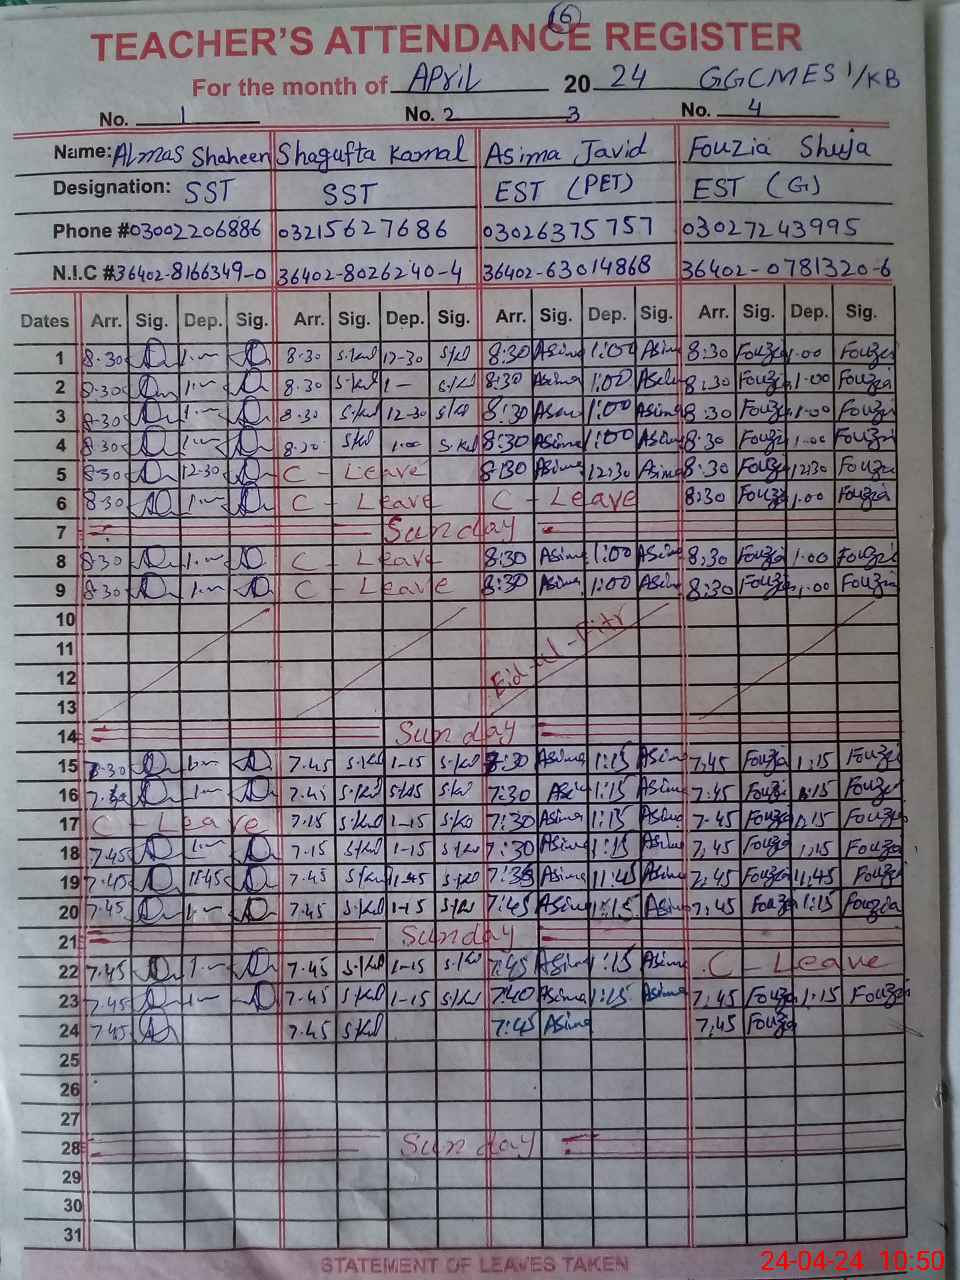 6
TEACHER'S ATTENDANCE REGISTER
For the month of April 2024 GGCMES 1/KB
No. 1 No. 2 3 No. 4
Name: Almas Shaheen Shagufta Kamal Asima Javid Fouzia Shuja
Designation: SST SST EST (PET) EST (G)
Phone # 03002206886 03215627686 03026375757 03027243995
N.I.C # 36402-8166349-0 36402-8026240-4 36402-63014868 36402-0781320-6
Dates Arr. Sig. Dep. Sig. Arr. Sig. Dep. Sig. Arr. Sig. Dep. Sig. Arr. Sig. Dep. Sig.
1 8.30 8.30 S.Kml 12-30 S/Kl 8:30 Asima 1:00 Asima 8:30 Fouzia 1.00 Fouzia
2 8.30 8.30 S.Kml 1- S.Kl 8:30 Asima 1:00 Asima 8:30 Fouzia 1.00 Fouzia
3 8.30 8.30 S.Kml 12-30 S/Kl 8:30 Asima 1:00 Asima 8:30 Fouzia 1.00 Fouzia
4 8.30 8.30 S/Kl 1.00 S.Kml 8:30 Asima 1:00 Asima 8:30 Fouzia 1.00 Fouzia
5 8.30 12-30 C - Leave 8:30 Asima 12:30 Asima 8:30 Fouzia 12:30 Fouzia
6 8.30 C - Leave C - Leave 8:30 Fouzia 1.00 Fouzia
7 Sunday
8 8.30 C - Leave 8:30 Asima 1:00 Asima 8:30 Fouzia 1.00 Fouzia
9 8.30 C - Leave 8:30 Asima 1:00 Asima 8:30 Fouzia 1.00 Fouzia
10
11 Eid-ul-Fitr
12
13
14 Sunday
15 7.45 S.Kml 1-15 S.Kl Asima 1:15 Asima 7:45 Fouzia 1:15 Fouzia
16 7.45 S.Kml S.Kl 7:30 Asima 1:15 Asima 7:45 Fouzia 1:15 Fouzia
17 C - Leave 7.15 S.Kml 1-15 S.Kl 7:30 Asima 1:15 Asima 7.45 Fouzia 1:15 Fouzia
18 7.45 7.15 S.Kml 1-15 S.Kl 7:30 Asima 1:15 Asima 7:45 Fouzia 1:15 Fouzia
19 7.45 11.45 7.45 S.Kml 11.45 S.Kl Asima 11:45 Asima 7:45 Fouzia 11:45 Fouzia
20 7.45 7.45 S.Kml 1-15 S.Kl 7:45 Asima 1:15 Asima 7:45 Fouzia 1:15 Fouzia
21 Sunday
22 7.45 7.45 S.Kml 1-15 S.Kl 7:45 Asima 1:15 Asima C - Leave
23 7.45 7.45 S.Kml 1-15 S.Kl 7:40 Asima 1:15 Asima 7:45 Fouzia 1:15 Fouzia
24 7.45 7.45 S.Kml 7:45 Asima 7:45 Fouzia
25
26
27
28 Sunday
29
30
31
STATEMENT OF LEAVES TAKEN
24-04-24 10:50